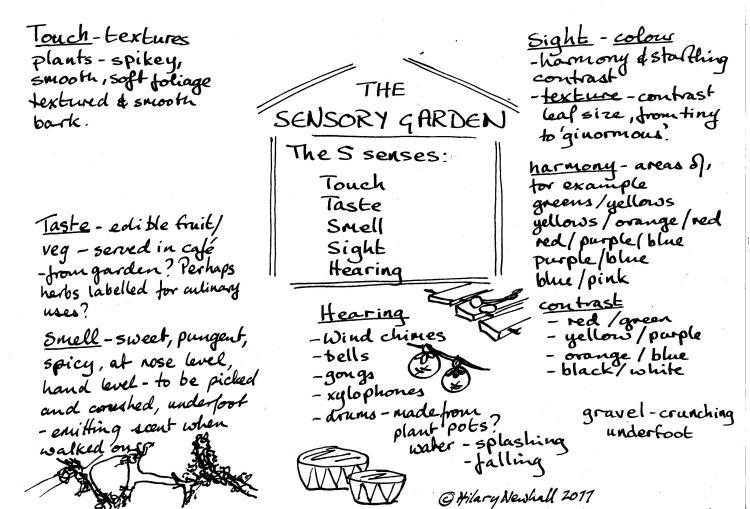 THE
SENSORY GARDEN
The 5 senses:
Touch
Taste
Smell
Sight
Hearing
Touch - textures
plants - spikey,
smooth, soft foliage
textured & smooth
bark.
Taste - edible fruit/
veg - served in café
- from garden? Perhaps
herbs labelled for culinary
uses?
Smell - sweet, pungent,
spicy, at nose level,
hand level - to be picked
and crushed, underfoot
- emitting scent when
walked on
Hearing
- Wind chimes
- bells
- gongs
- xylophones
- drums - made from
plant pots?
water - splashing
- falling
Sight - colour
- harmony & startling
contrast
- texture - contrast
leaf size, from tiny
to 'ginormous'.
harmony - areas of,
for example
greens/yellows
yellows/orange/red
red/purple/blue
purple/blue
blue/pink
contrast
- red/green
- yellow/purple
- orange/blue
- black/white
gravel - crunching
underfoot
© Hilary Newhall 2017